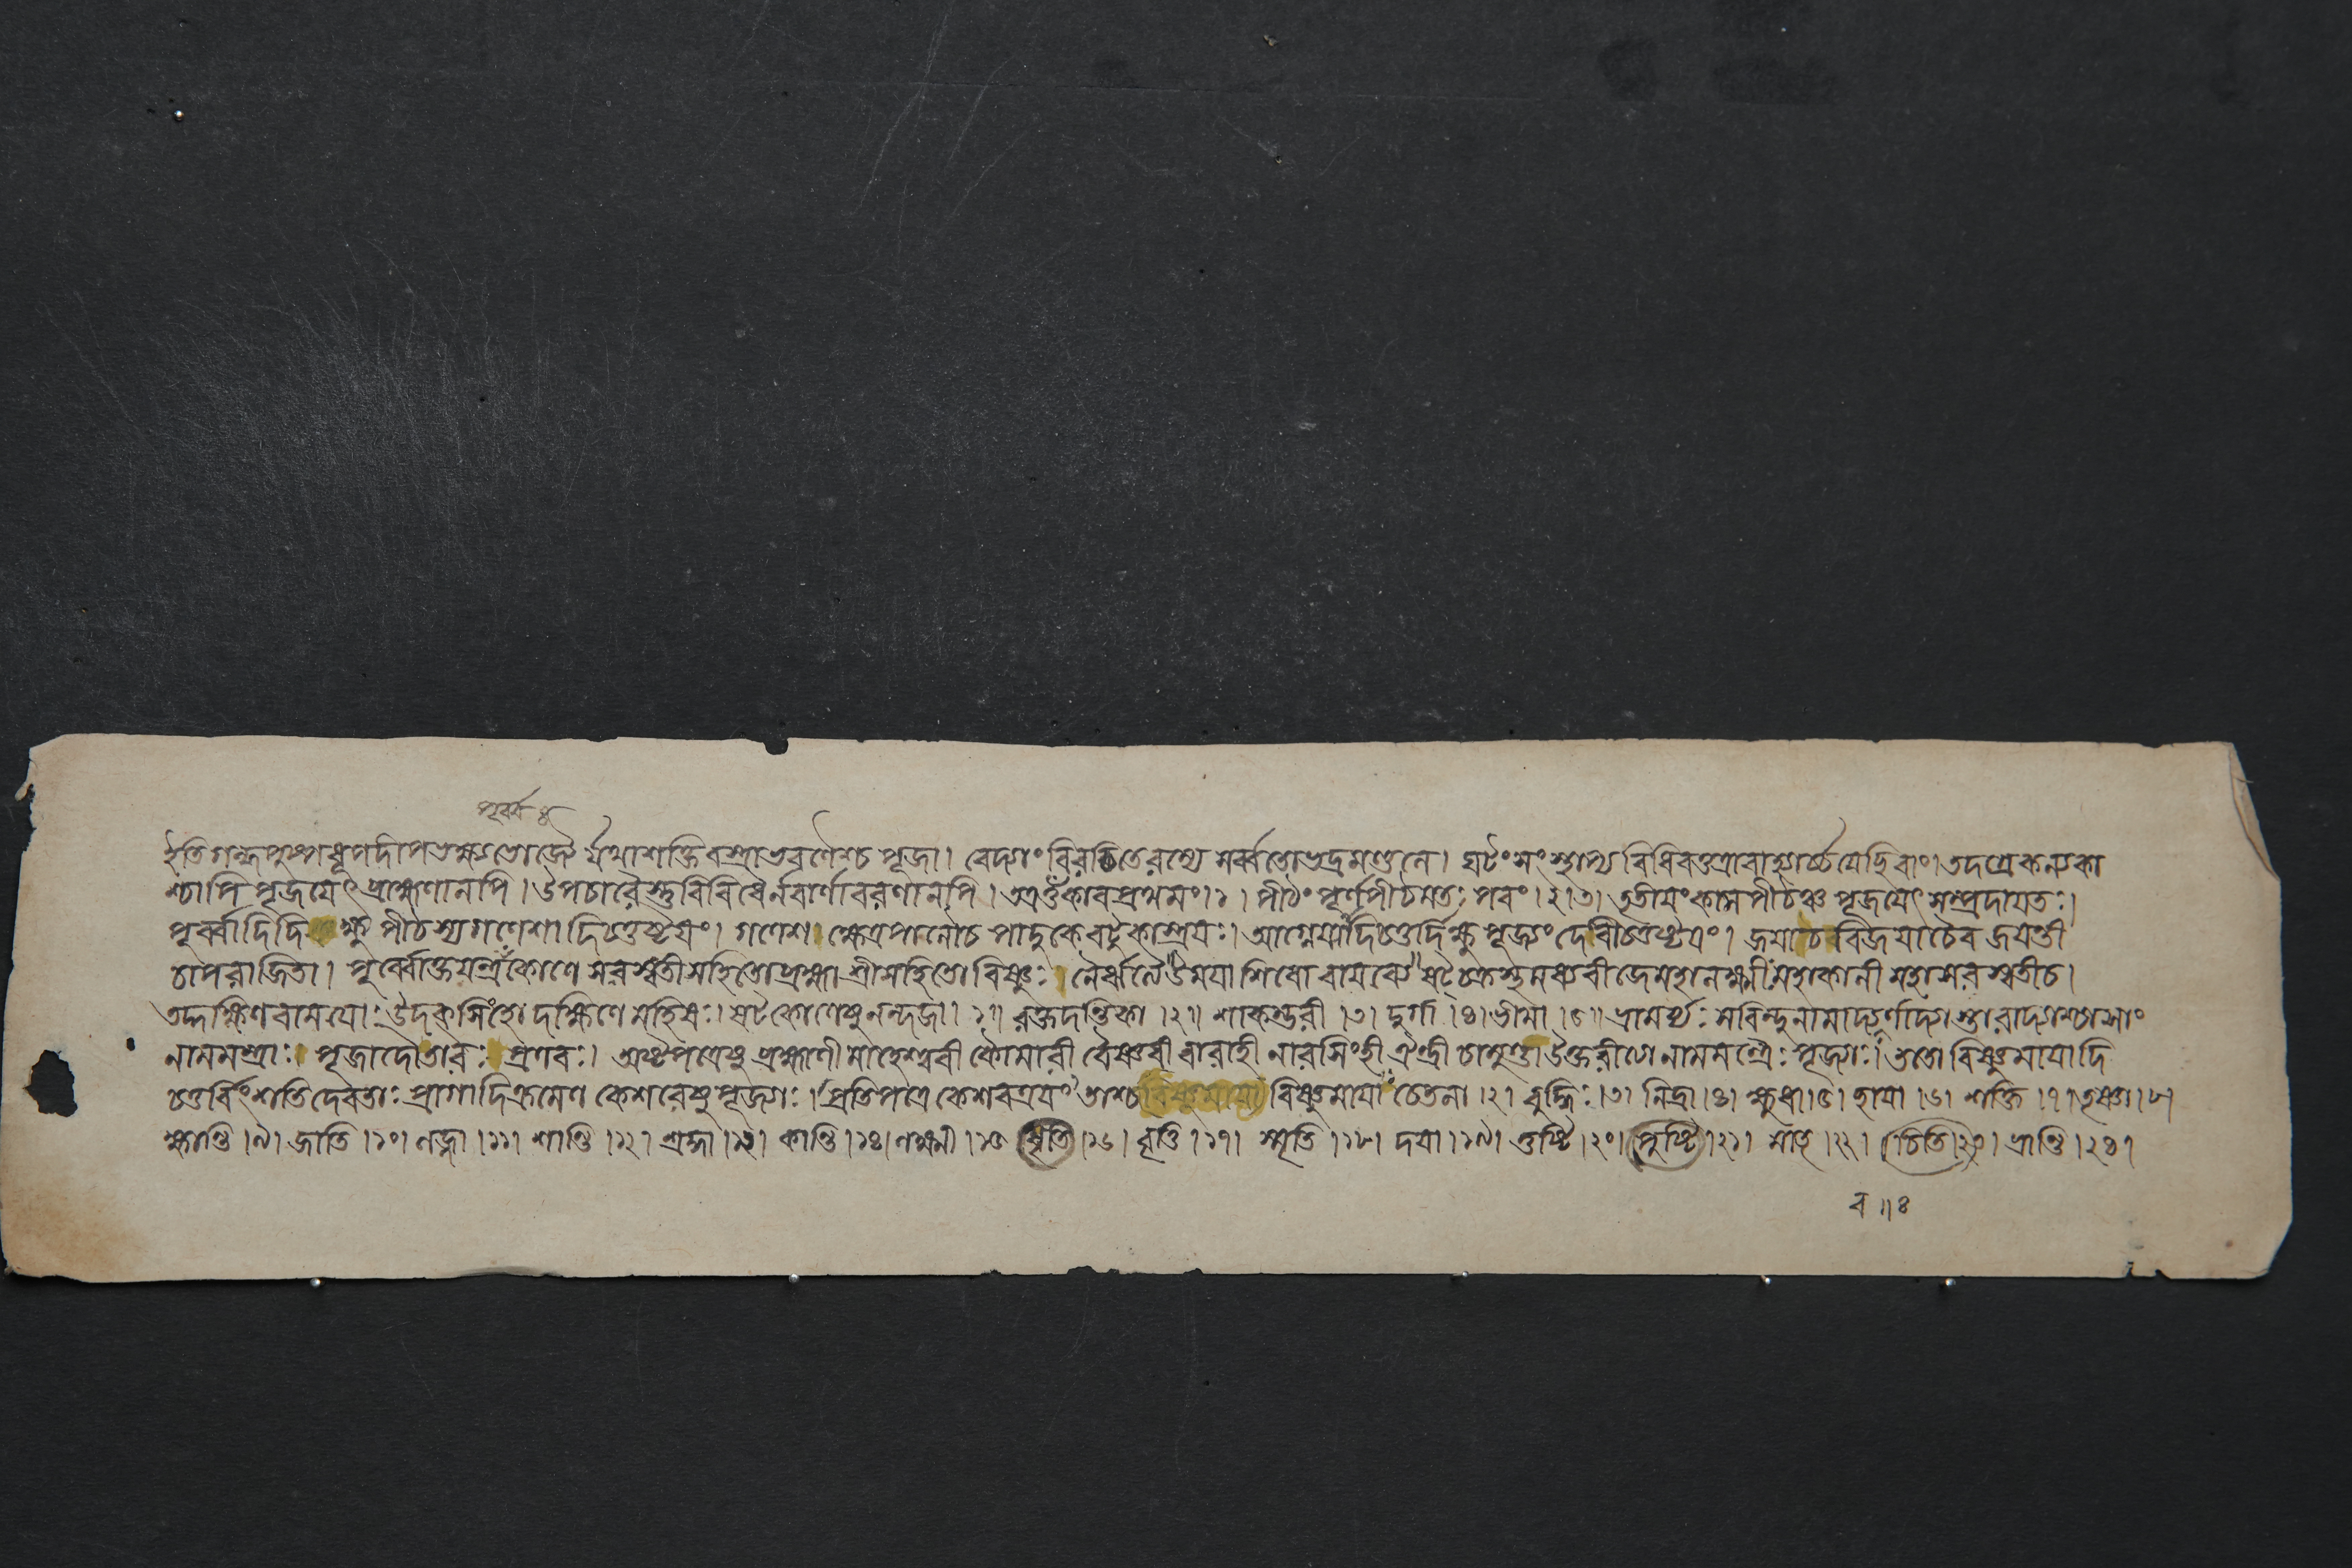 পূর্ব্ব ৪
ইতি গন্ধপুষ্পধূপদীপভক্ষ্যভোজ্যৈর্যথাশক্তিবস্ত্রাভরণৈশ্চ পূজা। বেদ্যাং বিরচিতেরম্যে সর্ব্বতোভদ্রমণ্ডলে। ঘটং সংস্থাপ্য বিধিবত্তত্রাবাহ্যার্চ্চয়েচ্ছিবাং। তদগ্রে কন্যকা
শ্চাপি পূজয়েৎ ব্রাহ্মণানপি। উপচারৈস্তু বিবিধৈর্নবার্ণাবরণানপি। অত্র ওঁকারপ্রথমং।১। পীঠং পূর্ণপীঠমতঃ পরং।২।৩। তৃতীয়ং কামপীঠঞ্চ পূজয়েৎ সম্প্রদায়তঃ।
পূর্ব্বাদিদিক্ষু পীঠস্য গণেশাদিচতুষ্টয়ং। গণেশ। ক্ষেত্রপালৌচ পাদুকে বটুকাস্ত্রয়ঃ। আগ্নেয়াদিচতুর্দিক্ষু পূজ্যং দেবীচতুষ্টয়ং। জয়াচ বিজয়াচৈব জয়ন্তী
চাপরাজিতা। পূর্ব্বোক্তযন্ত্রকোণে সরস্বতীসহিতো ব্রহ্মা শ্রীসহিতো বিষ্ণুঃ। নৈর্ঋত্যে উময়া শিবো বায়ব্যে ষট্চক্রস্থ মহালক্ষ্মী মহাকালী মহাসরস্বতীচ।
তদ্দক্ষিণবাময়োঃ উদক্ সিংহো দক্ষিণে মহিষঃ। ষট্কোণেষু নন্দজা।১॥ রক্তদন্তিকা।২॥ শাকম্ভরী।৩। দুর্গা।৪। ভীমা।৫॥ ভ্রামর্য্যঃ সবিন্দুনামাদ্যর্ণাদ্যা
নামমন্ত্রাঃ। পূজাদৌ তারঃ প্রণবঃ। অষ্টপত্রেষু ব্রহ্মাণী মাহেশ্বরী কৌমারী বৈষ্ণবী বারাহী নারসিংহী ঐন্দ্রী চামুণ্ডা নামমন্ত্রৈঃ পূজ্যাঃ। ততো বিষ্ণুমায়াদি
চতুর্বিংশতিদেবতাঃ প্রাগাদিক্রমেণ কেশরেষু পূজ্যাঃ। প্রতিপত্রে কেশরত্রয়ং তাশ্চ বিষ্ণুমায়া চেতনা।২। বুদ্ধিঃ।৩। নিদ্রা।৪। ক্ষুধা।৫। ছায়া।৬। শক্তি।৭। তৃষ্ণা।৮।
ক্ষান্তি।৯। জাতি।১০। লজ্জা।১১। শান্তি।১২। শ্রদ্ধা।১৩। কান্তি।১৪। লক্ষ্মী।১৫ ধৃতি।১৬। বৃত্তি।১৭। স্মৃতি।১৮। দয়া।১৯। তুষ্টি।২০। পুষ্টি।২১। মাতৃ।২২। চিতি।২৩। ভ্রান্তি।২৪।
ব॥৪